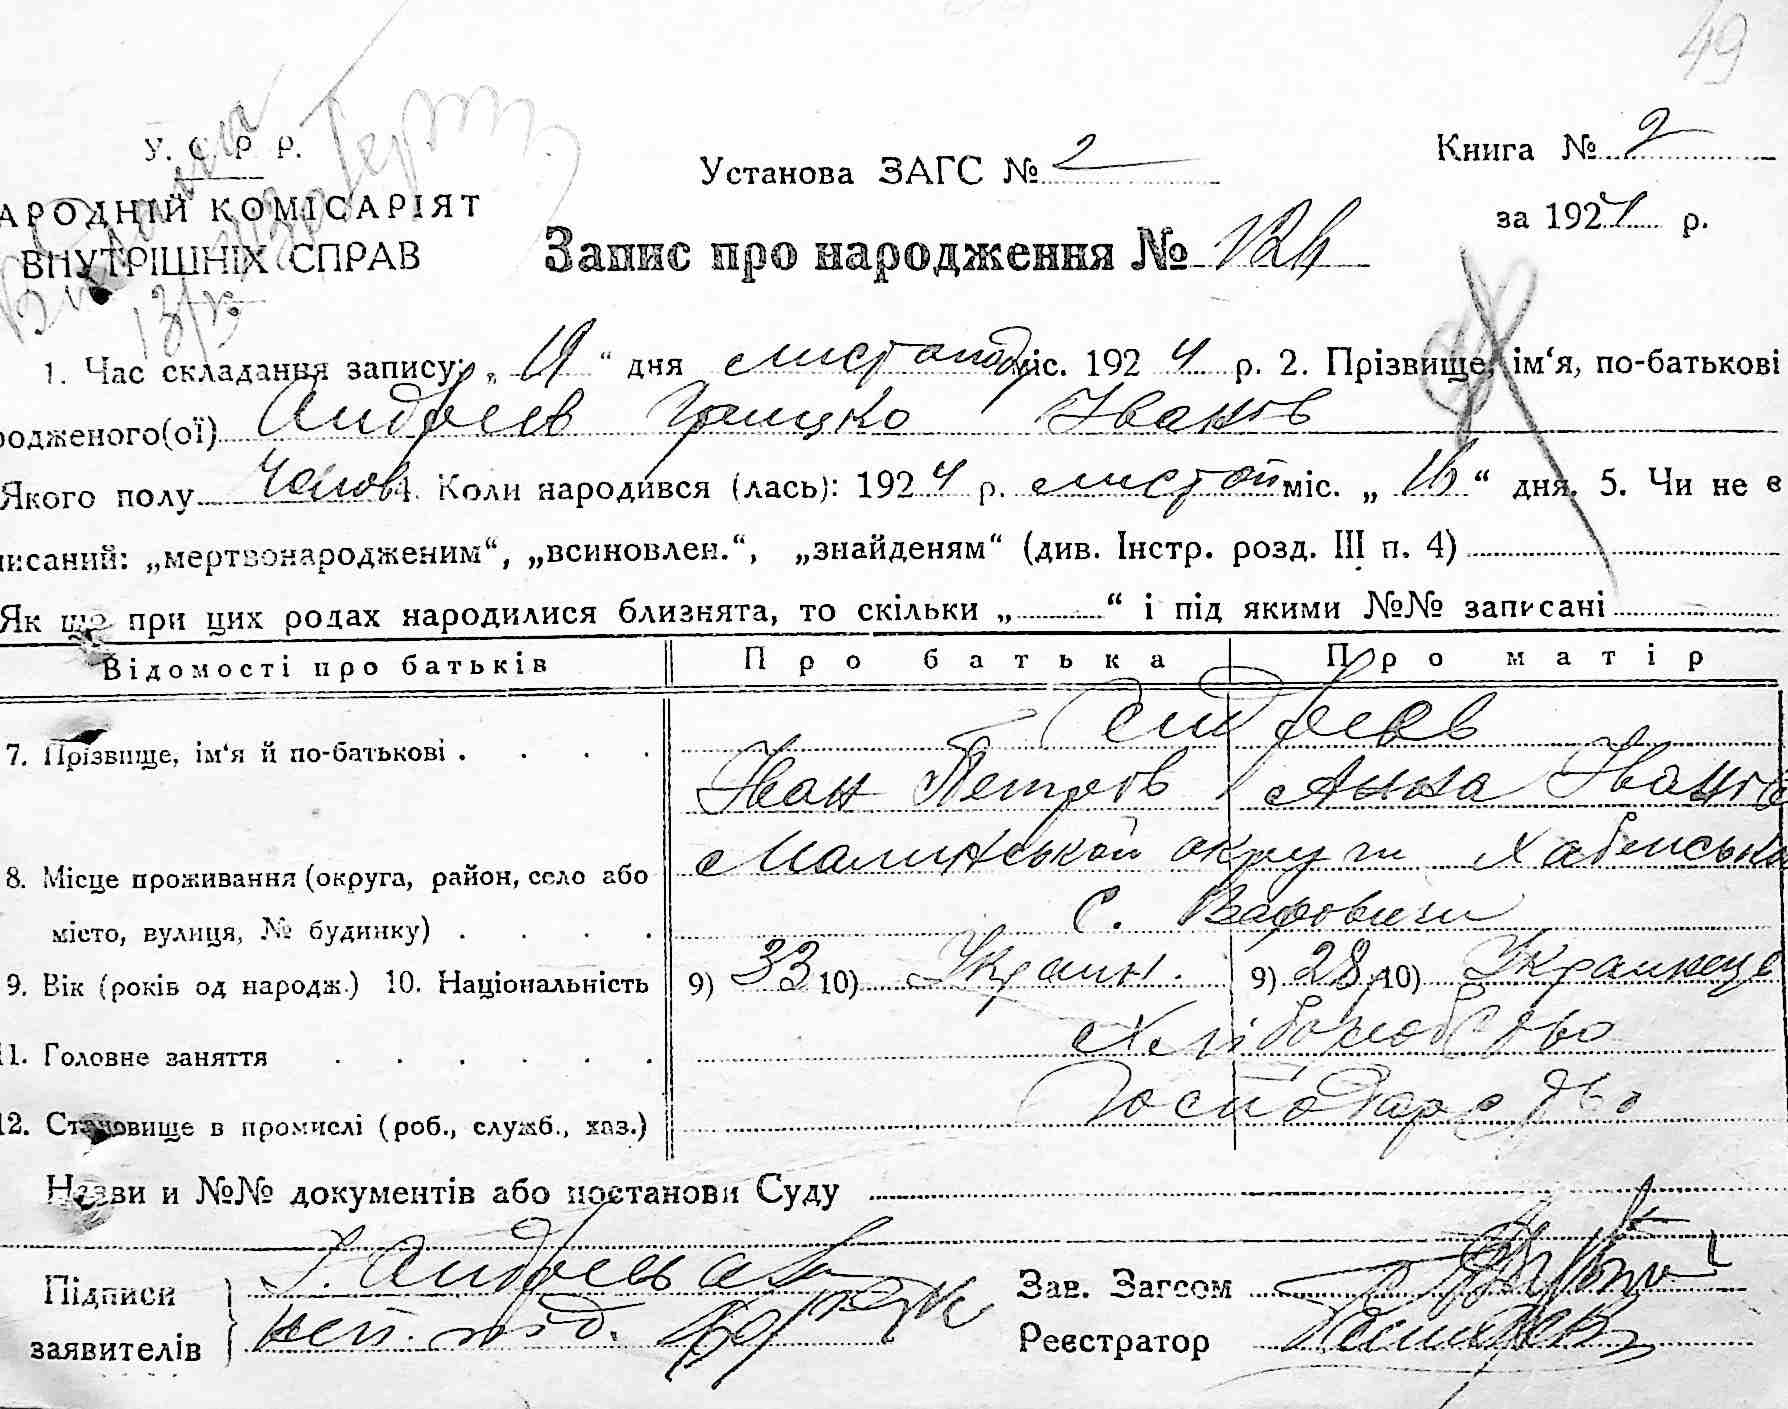 49
У. С. Р. Р.
Установа ЗАГС № 2
Книга № 2
АРОДНІЙ КОМІСАРІЯТ
за 1924 р.
ВНУТРІШНІХ СПРАВ
Запис про народження №
1. Час складання запису: „ 19 “ дня листопад міс. 1924 р. 2. Прізвище, ім‘я, по-батькові
родженого(ої) Андреєв Грицко Іванов
Якого полу Чолов. 4. Коли народився (лась): 1924 р. листоп міс. „ 16 “ дня. 5. Чи не є
писаний: „мертвонародженим“, „всиновлен.“, „знайденям“ (див. Інстр. розд. III п. 4)
Як що при цих родах народилися близнята, то скільки „ “ і під якими №№ записані
Відомості про батьків Про батька Про матір
Андреєв
7. Прізвище, ім‘я й по-батькові . . . .
Іван Петров Анна Іванов
8. Місце проживання (округа, район, село або
Малинської округи Хабенська
місто, вулиця, № будинку) . . . .
с. Варовичи
9. Вік (років од народж.) 10. Національність 9) 33 10) Украин. 9) 28 10) Украинець
11. Головне заняття . . . . . .
Хліборобство
12. Становище в промислі (роб., служб., хаз.)
Господарство
Назви и №№ документів або постанови Суду
Підписи
І. Андреєв а
Зав. Загсом
заявителів
неп. під.
Реєстратор